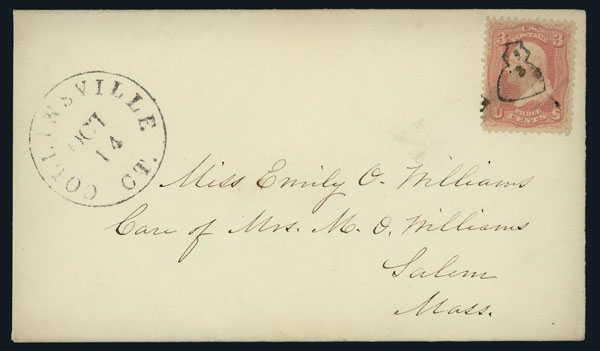 3 U.S. 3
U S
THREE
CENTS
COLLINSVILLE
OCT
14
CT.
Miss Emily O. Williams
Care of Mrs. M. O. Williams
Salem
Mass.